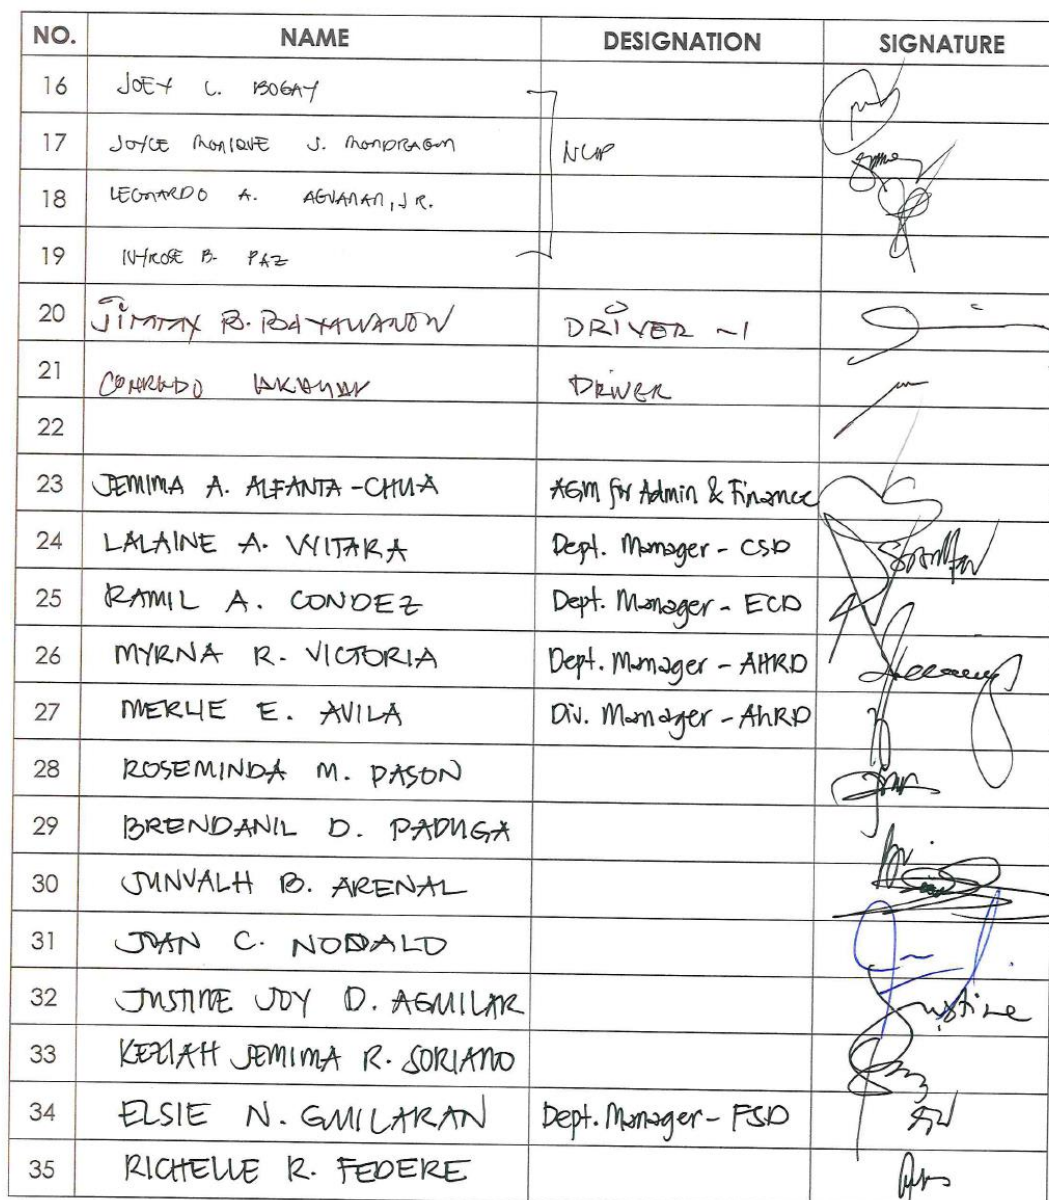 NO. NAME DESIGNATION SIGNATURE
16 JOEY C. BOGAY
17 JOYCE MONIQUE J. MONDRAGON NCIP
18 LEONARDO A. AGUANAN, JR.
19 B. PAZ
20 JIMMY B. BAYAWANON DRIVER -1
21 CONRADO DRIVER
22
23 JEMIMA A. ALFANTA-CHUA AGM for Admin & Finance
24 LALAINE A. VYTARA Dept. Manager - CSD
25 RAMIL A. CONDEZ Dept. Manager - ECD
26 MYRNA R. VICTORIA Dept. Manager - AHRD
27 MERLIE E. AVILA Div. Manager - AHRD
28 ROSEMINDA M. PASON
29 BRENDANIL D. PADUGA
30 JUNVALH B. ARENAL
31 JOAN C. NODALO
32 JUSTINE JOY D. AGUILAR Justine
33 KEZIAH JEMIMA R. SORIANO
34 ELSIE N. GUILARAN Dept. Manager - FSD
35 RICHELLE R. FEDERE